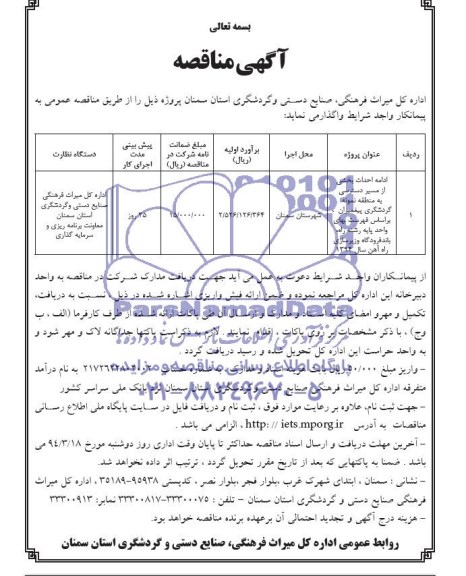 بسمه تعالی
آگهی مناقصه
اداره کل میراث فرهنگی، صنایع دستی وگردشگری استان سمنان پروژه ذیل را از طریق مناقصه عمومی به
پیمانکار واجد شرایط واگذارمی نماید:
ردیف
عنوان پروژه
محل اجرا
برآورد اولیه (ریال)
مبلغ ضمانت نامه شرکت در مناقصه (ریال)
پیش بینی مدت اجرای کار
دستگاه نظارت
۱
ادامه احداث بخشی
از مسیر دسترسی
به منطقه نمونه
گردشگری
براساس فهرست بهای
واحد پایه رشته راه،
باندفرودگاه وزیرسازی
راه آهن سال ۱۳۹۳
شهرستان سمنان
۲/۵۴۶/۱۲۶/۳۶۴
۱۵/۰۰۰/۰۰۰
۴۵ روز
اداره کل میراث فرهنگی
صنایع دستی وگردشگری
استان سمنان
معاونت برنامه ریزی و
سرمایه گذاری
از پیمانکاران واجد شرایط دعوت به عمل می آید جهت دریافت مدارک شرکت در مناقصه به واحد
دبیرخانه این اداره کل مراجعه نموده و ضمن ارائه فیش واریزی اشاره شده در ذیل، نسبت به دریافت،
تکمیل و مهرو امضای کلیه اسناد و مدارک و ارسال آن طی پاکات ارائه شده از طرف کارفرما (الف ، ب
وج) ، با ذکر مشخصات بر روی پاکات ، اقدام نمایند. لازم به ذکراست پاکتها جداگانه لاک و مهر شود و
به واحد حراست این اداره کل تحویل شده و رسید دریافت گردد .
به درآمد
متفرقه اداره کل میراث فرهنگی صنایع دستی وگردشگری استان سمنان نزد بانک ملی سراسر کشور
- جهت ثبت نام، علاوه بر رعایت موارد فوق ، ثبت نام و دریافت فایل در سایت پایگاه ملی اطلاع رسانی
مناقصات به آدرس http://iets.mporg.ir ، الزامی می باشد .
- آخرین مهلت دریافت و ارسال اسناد مناقصه حداکثر تا پایان وقت اداری روز دوشنبه مورخ ۹۴/۳/۱۸ می
باشد . ضمنا به پاکتهایی که بعد از تاریخ مقرر تحویل گردد ، ترتیب اثر داده نخواهد شد.
- نشانی : سمنان ، ابتدای شهرک غرب ،بلوار فجر ،بلوار نصر ، کدپستی ۹۵۹۳۸-۳۵۱۸۹ ، اداره کل میراث
فرهنگی صنایع دستی و گردشگری استان سمنان - تلفن : ۳۳۳۰۰۰۷۵-۳۳۳۰۰۸۱۷ نمابر: ۳۳۳۰۰۹۱۳
- هزینه درج آگهی و تجدید احتمالی آن برعهده برنده مناقصه خواهد بود.
روابط عمومی اداره کل میراث فرهنگی، صنایع دستی و گردشگری استان سمنان
ParsNamadData
۰۲۱-۸۸۳۴۹۶۷۰-۵